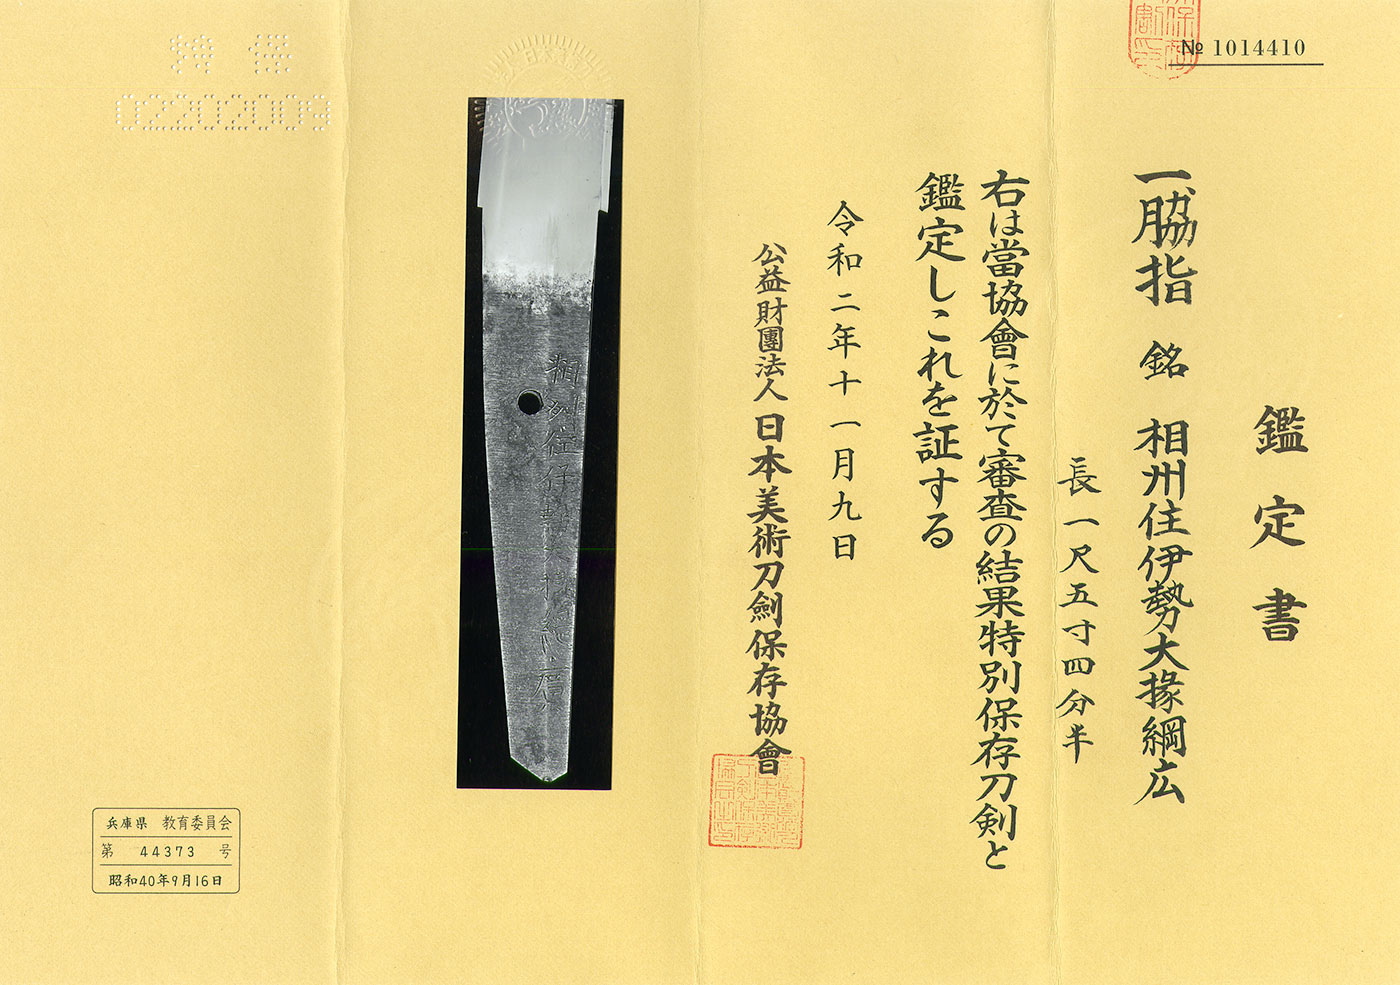 № 1014410
鑑定書
一脇指 銘 相州住伊勢大掾綱広
長一尺五寸四分半
右は當協會に於て審査の結果特別保存刀剣と
鑑定しこれを証する
令和二年十一月九日
公益財團法人日本美術刀劍保存協會
相州住伊勢大掾綱広
特保
02202009
兵庫県 教育委員会
第 44373 号
昭和40年9月16日